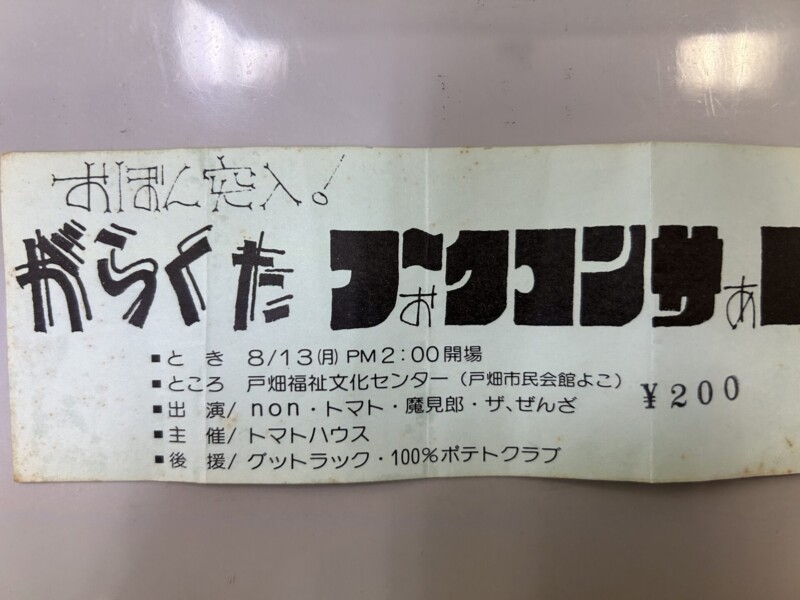 おぼん突入!
がらくた フォークコンサあ
■とき 8/13(月)PM2:00開場
■ところ 戸畑福祉文化センター(戸畑市民会館よこ)
■出演/non・トマト・魔見郎・ザ、ぜんざ
¥200
■主催/トマトハウス
■後援/グットラック・100%ポテトクラブ